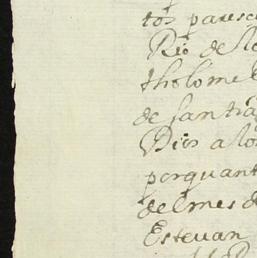 tos paresc
Rio de lo
tholome
de santia
Dios a lo
porquant
del mes d
Estevan